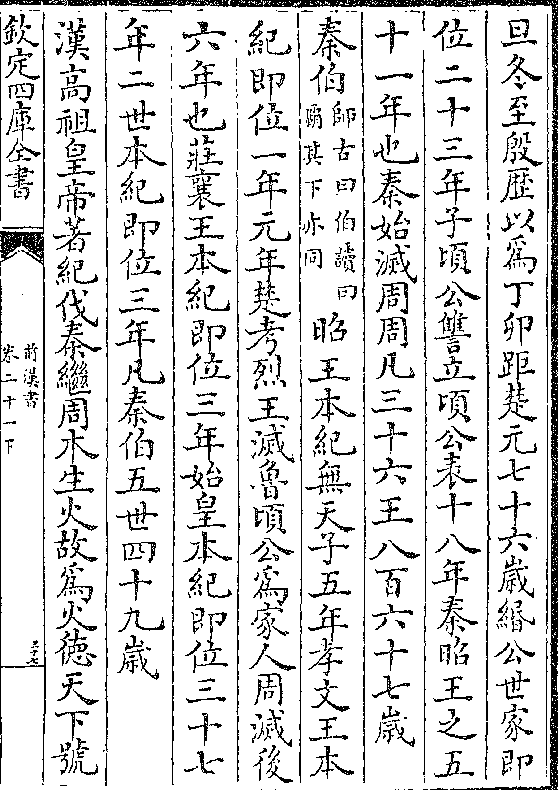 旦冬至殷歴以為丁卯距楚元七十六歳緡公世家即
位二十三年子頃公讐立頃公表十八年秦昭王之五
十一年也秦始滅周周凡三十六王八百六十七歳
秦伯師古曰伯讀曰霸其下亦同昭王本紀無天子五年孝文王本
紀即位一年元年楚考烈王滅魯頃公為家人周滅後
六年也莊襄王本紀即位三年始皇本紀即位三十七
年二世本紀即位三年凡秦伯五世四十九歳
漢高祖皇帝著紀伐秦繼周木生火故為火徳天下號
欽定四庫全書
前漢書
卷二十一下